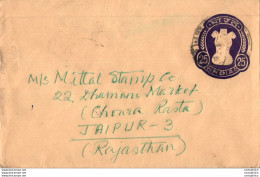 M/s Mittal Stamp Co
22, Dhamani Market
(Choura Rasta)
JAIPUR-3
(Rajasthan)
25 25
INDIA